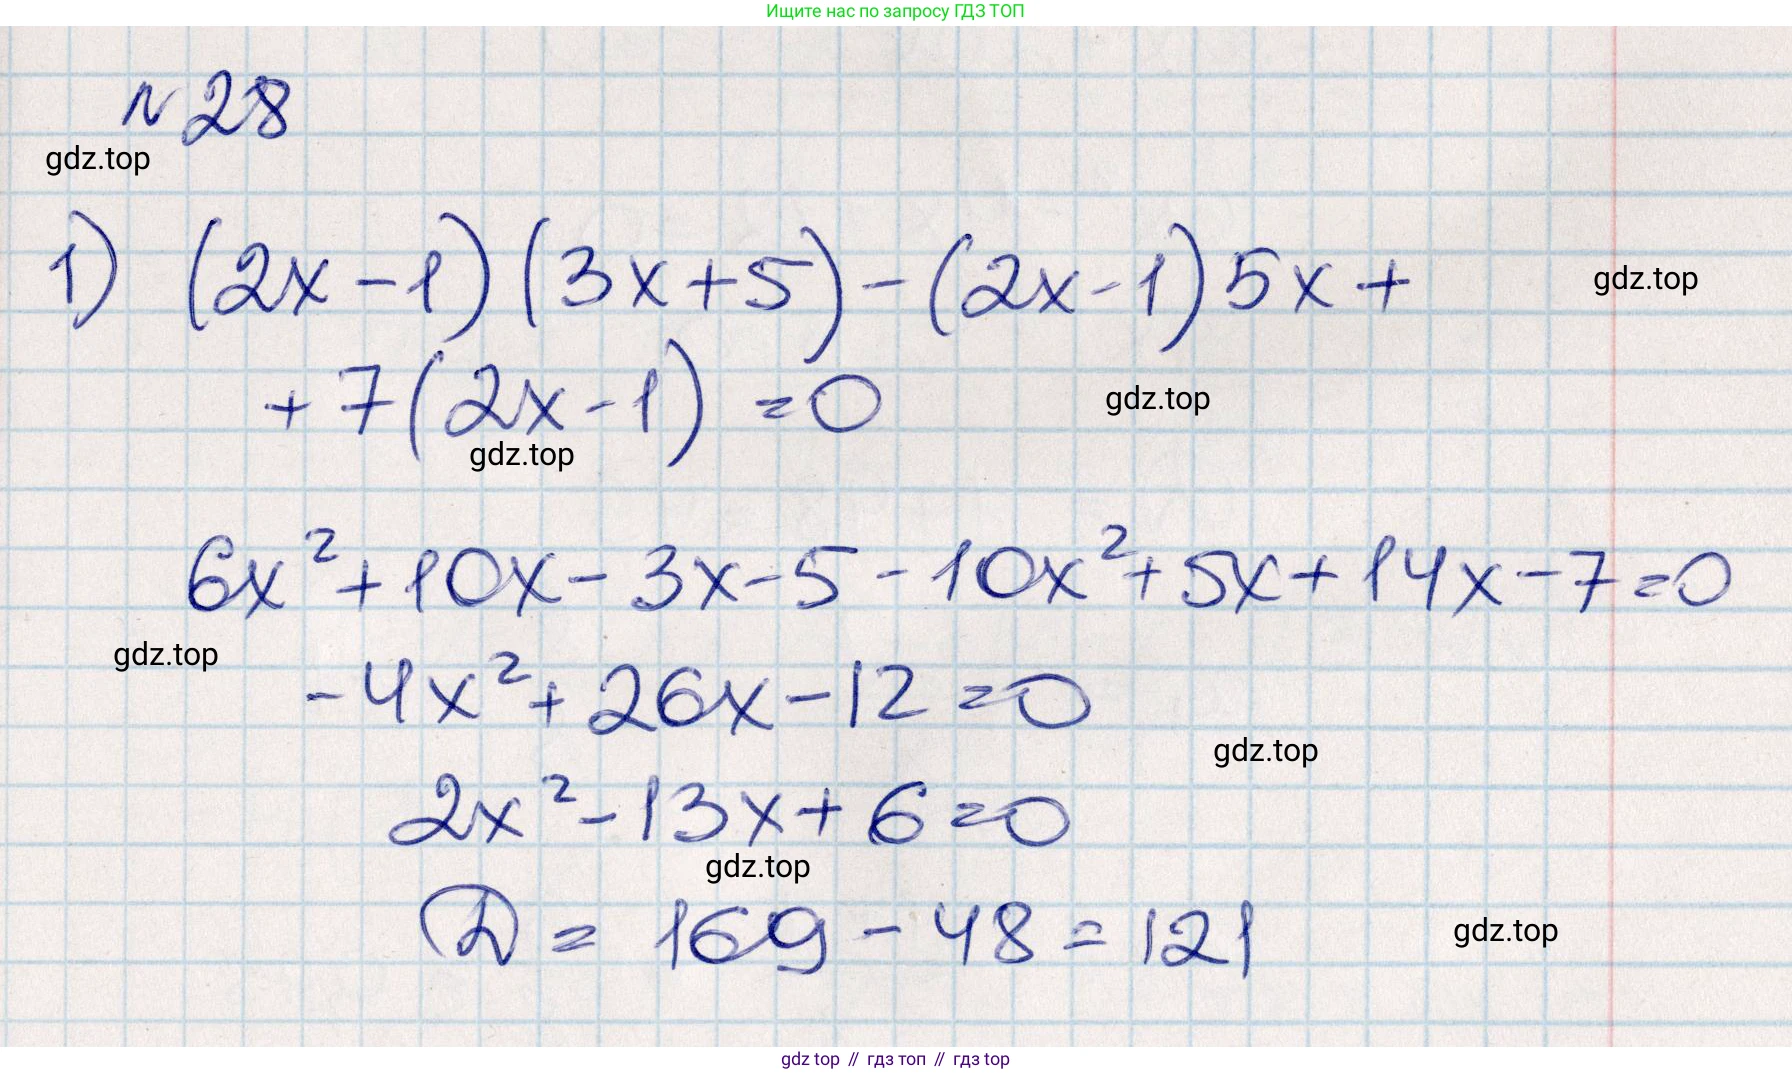 Ищите нас по запросу ГДЗ ТОП
№ 28
gdz.top
1) (2x-1)(3x+5)-(2x-1)5x+
gdz.top
+7(2x-1)=0
gdz.top
gdz.top
6x²+10x-3x-5-10x²+5x+14x-7=0
gdz.top
-4x²+26x-12=0
gdz.top
2x²-13x+6=0
gdz.top
D = 169-48=121
gdz.top
gdz top // гдз топ // гдз top